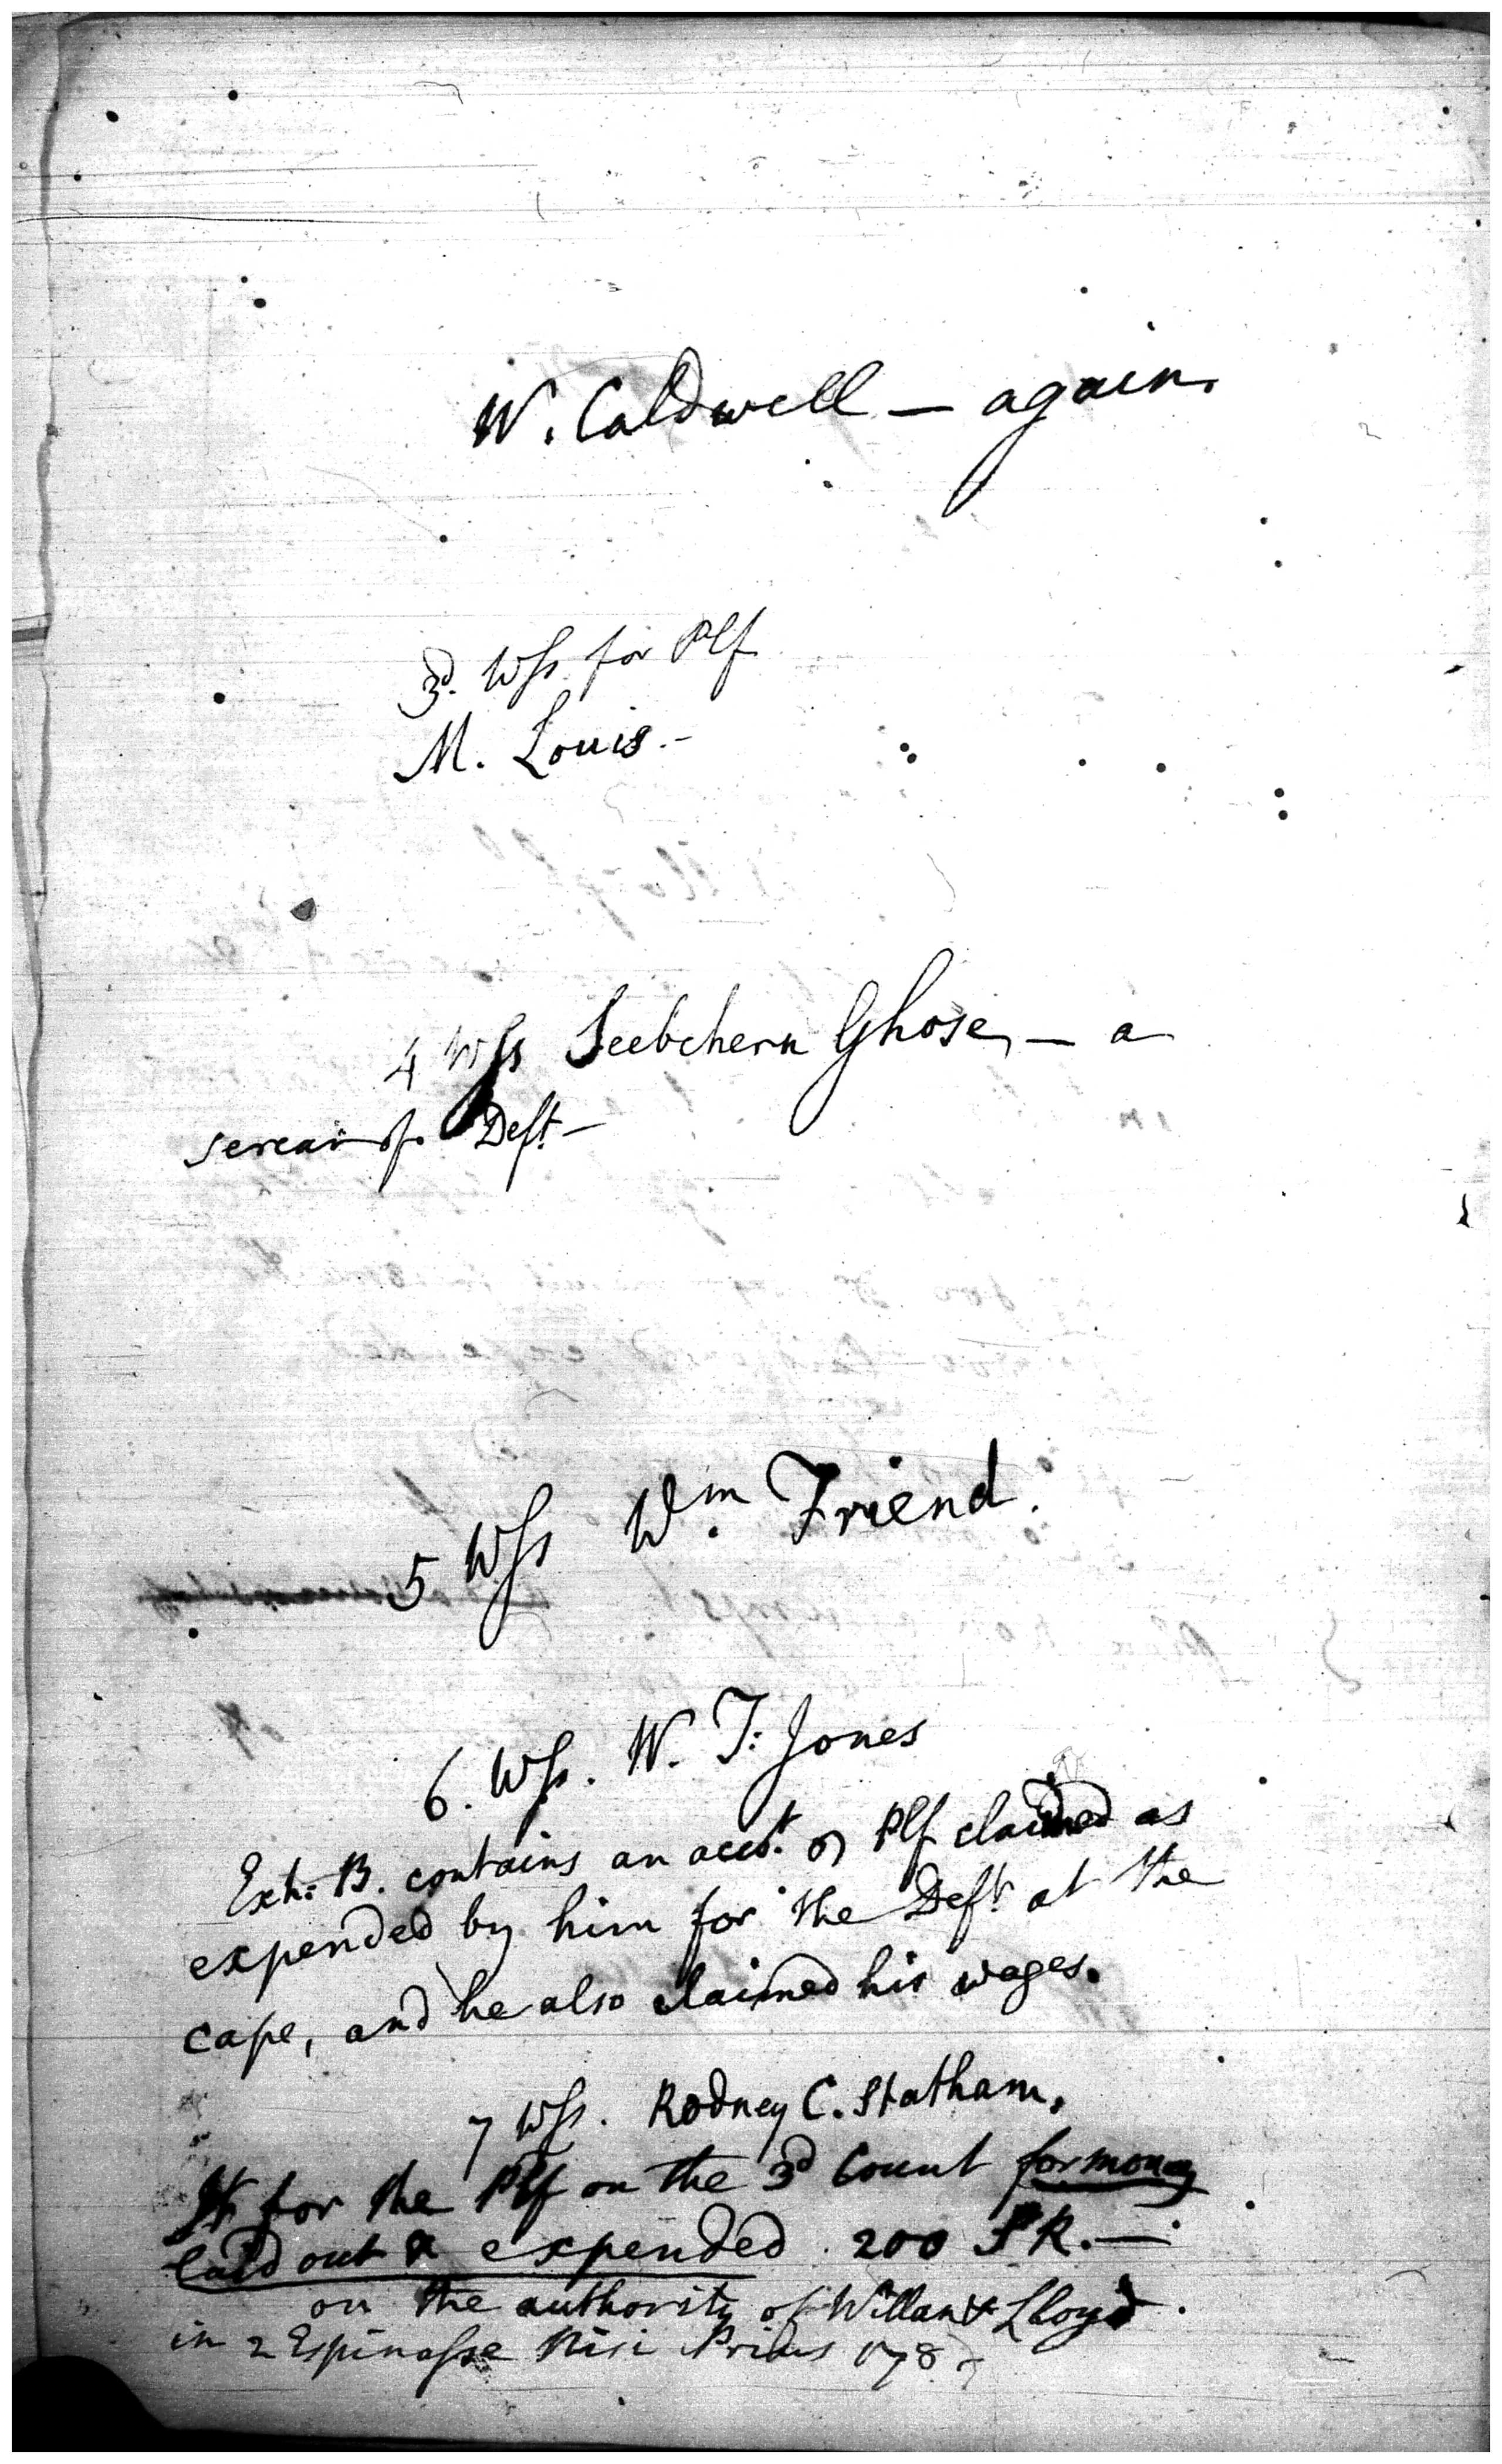 W. Caldwell — again.
3d. Wss. for Plf
M. Louis. -
4 Wss Seebchern Ghose, — a
sercar of Deft —
5 Wss Wm. Friend.
6. Wss. W. T: Jones
Exh: B. contains an acct. of Plf claimed as
expended by him for the Deft at the
cape, and he also claimed his wages.
7 Wss. Rodney C. Statham.
Jt for the Plf on the 3d Count for money
laid out & expended 200 SR. —
on the authority of Willan & Lloyd.
in 2 Espinasse Nisi Prius